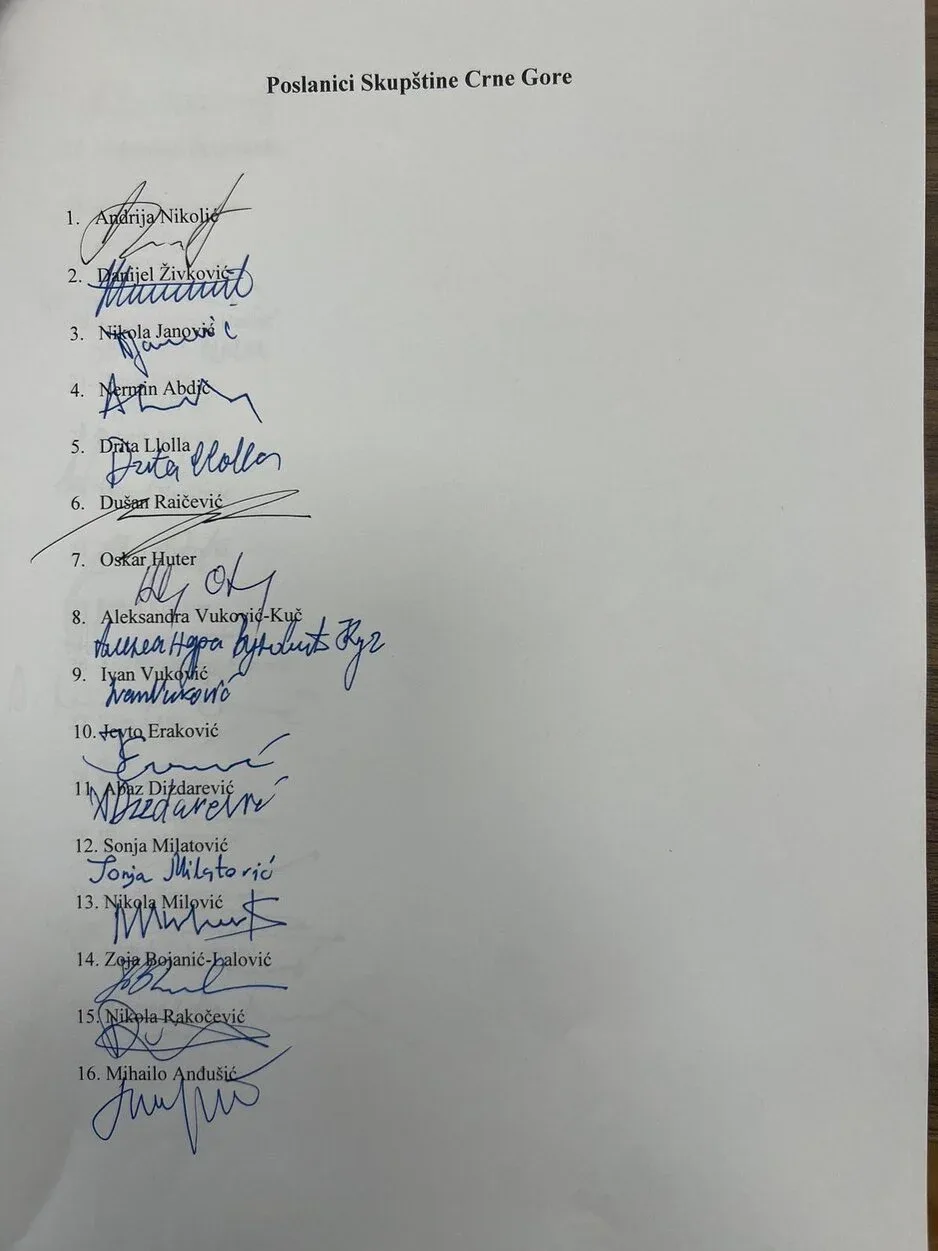 Poslanici Skupštine Crne Gore
1. Andrija Nikolić
2. Danijel Živković
3. Nikola Janović
Janović
4. Nermin Abdić
5. Drita Llolla
Drita Llolla
6. Dušan Raičević
7. Oskar Huter
8. Aleksandra Vuković-Kuč
Александра Вуковић Куч
9. Ivan Vuković
Ivan Vuković
10. Jevto Eraković
11. Abaz Dizdarević
Dizdarević
12. Sonja Milatović
Sonja Milatović
13. Nikola Milović
14. Zoja Bojanić-Lalović
15. Nikola Rakočević
16. Mihailo Anđušić